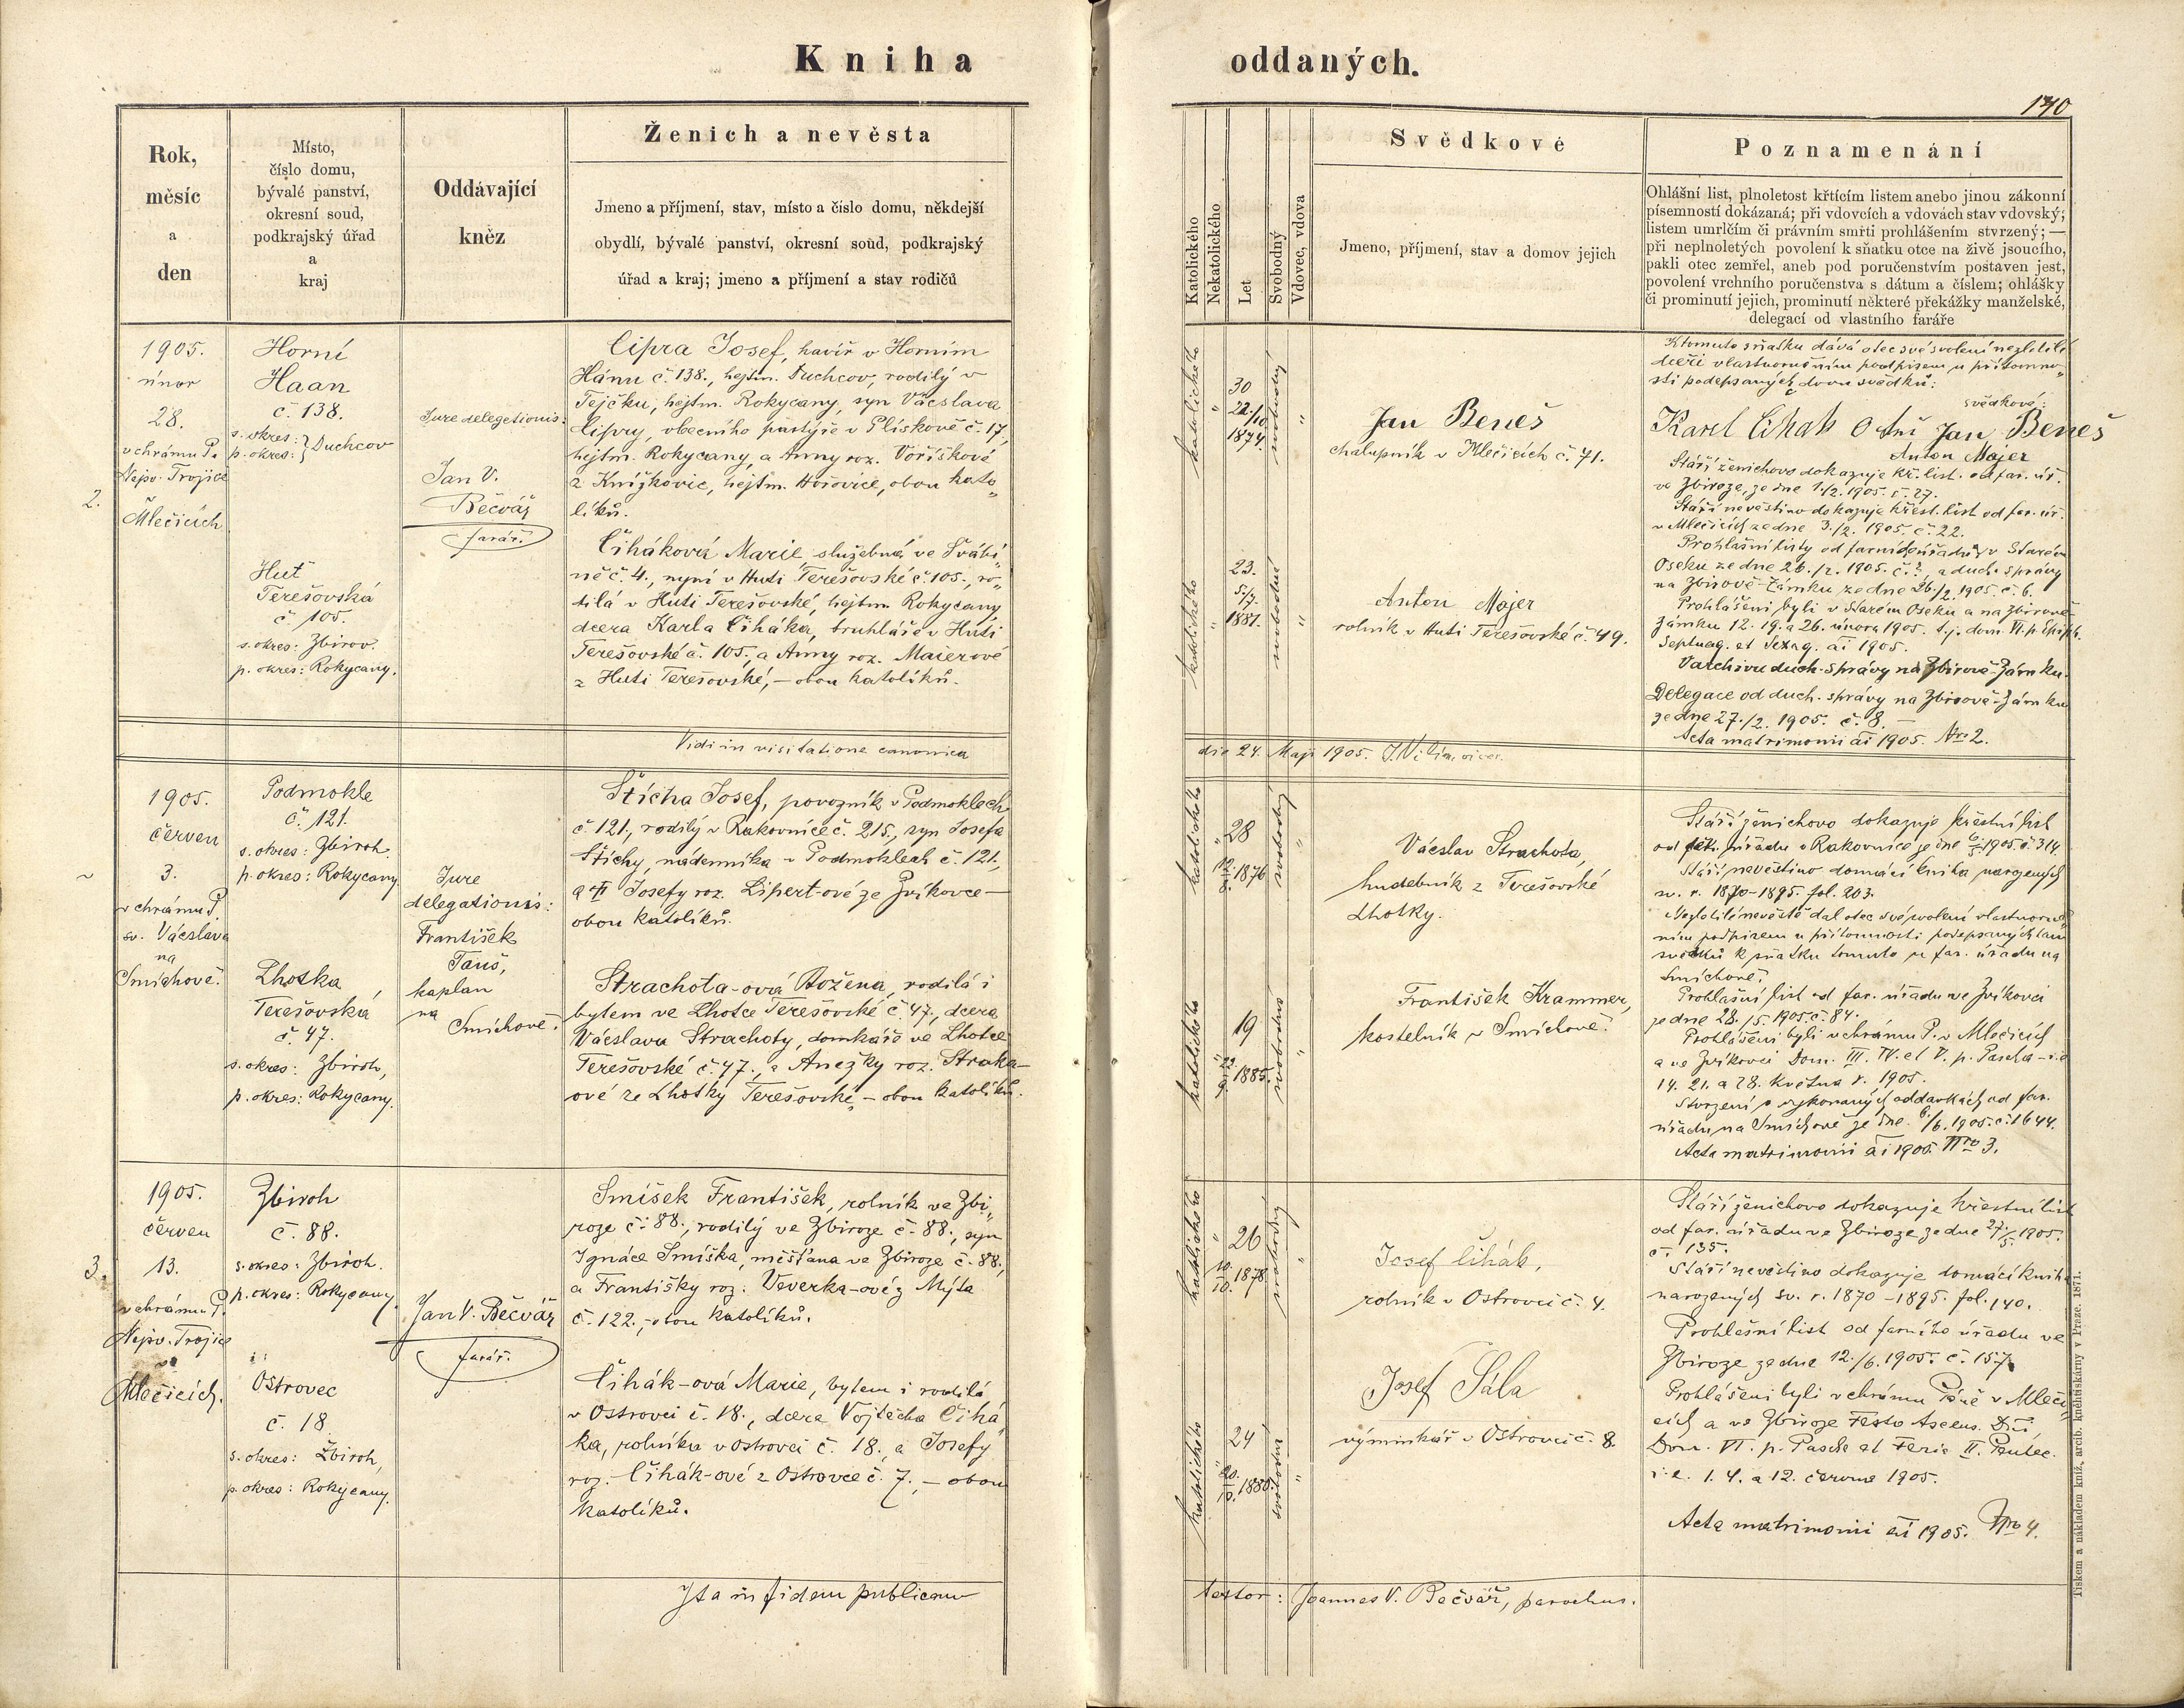 Kniha oddaných.
170
Rok,
měsíc
a
den
Místo,
číslo domu,
bývalé panství,
okresní soud,
podkrajský úřad
a
kraj
Oddávající
kněz
Ženich a nevěsta
Jmeno a příjmení, stav, místo a číslo domu, někdejší
obydlí, bývalé panství, okresní soud, podkrajský
úřad a kraj; jmeno a příjmení a stav rodičů
Katolického
Nekatolického
Let
Svobodný
Vdovec, vdova
Svědkové
Jmeno, příjmení, stav a domov jejich
Poznamenání
Ohlášní list, plnoletost křtícím listem anebo jinou zákonní
písemností dokázaná; při vdovcích a vdovách stav vdovský;
listem umrlčím či právním smrti prohlášením stvrzený; —
při neplnoletých povolení k sňatku otce na živě jsoucího,
pakli otec zemřel, aneb pod poručenstvím postaven jest,
povolení vrchního poručenstva s dátum a číslem; ohlášky
či prominutí jejich, prominutí některé překážky manželské,
delegací od vlastního faráře
2.
1905.
únor
28.
v chrámu P.
Nejsv. Trojice
Mlečicích
Horní
Haan
č. 138.
s. okres:
p. okres: } Duchcov
Huť
Terešovská
č. 105.
s. okres: Zbirov.
p. okres: Rokycany.
Jure delegationis:
Jan V.
Bečvář
farář.
Cipra Josef, havíř v Horním
Hánu č. 138., hejtm. Duchcov, rodilý v
Tejčku, hejtm. Rokycany, syn Václava
Cipry, obecního pastýře v Plískově č. 17,
hejtm. Rokycany, a Anny roz. Voříškové
z Knížkovic, hejtm. Hořovice, obou kato„
líků.
Čiháková Marie, služebná ve Svábí„
ně č. 4., nyní v Huti Terešovské č. 105., ro„
dilá v Huti Terešovské, hejtm. Rokycany,
dcera Karla Čiháka, truhláře v Huti
Terešovské č. 105., a Anny roz. Maierové
z Huti Terešovské, – obou katolíků.
katolického
"
30
22/10.
1874.
svobodný
"
katolického
"
23.
5/7.
1881.
svobodná
"
Jan Beneš
chalupník v Mlečicích č. 71.
Anton Majer
rolník v Huti Terešovské č. 49.
K tomuto sňatku dává otec své svolení nezletilé
dceři vlastnoručním podpisem u přítomno„
sti podepsaných dvou svědků:
svědkové:
Karel Čihak Jan Beneš
Anton Majer
Stáří ženichovo dokazuje kř. list. od far. úř.
ve Zbiroze, ze dne 1./2. 1905. č. 27.
Stáří nevěstino dokazuje křest. list od far. úř.
v Mlečicích ze dne 3./2. 1905. č. 22.
Prohlašní listy od farního úřadu v Starém
Oseku ze dne 26./2. 1905. č. ? a duch. správy
na Zbirově-Zámku, ze dne 26./2. 1905. č. 6.
Prohlášeni byli v Starém Oseku a na Zbirově-
Zámku 12. 19. a 26. února 1905. t. j. dom. VI. p. Epiph.
Septuag. et Sexag. ai 1905.
V archivu duch. správy na Zbirově-Zámku.
Delegace od duch. správy na Zbirově-Zámku
ze dne 27./2. 1905. č. 8. —
Acta matrimonii ai 1905. Nro 2.
Vidi in visitatione canonica
die 24. Maji 1905.
1905.
červen
3.
v chrámu P.
sv. Václava
na
Smíchově.
Podmokle
č. 121.
s. okres: Zbiroh.
p. okres: Rokycany
Lhotka
Terešovská
č. 47.
s. okres: Zbiroh,
p. okres: Rokycany.
Jure
delegationis:
František
Tauš,
kaplan
na
Smíchově.
Štícha Josef, povozník v Podmoklech
č. 121., rodilý v Rakovníce č. 215., syn Josefa
Štíchy, nádenníka v Podmoklech č. 121.,
a Josefy roz. Lipert-ové ze Zvíkovce –
obou katolíků.
Strachota-ová Božena, rodilá i
bytem ve Lhotce Terešovské č. 47., dcera
Václava Strachoty, domkáře ve Lhotce
Terešovské č. 47., a Anežky roz. Straka-
ové ze Lhotky Terešovské, – obou katolíků.
katolického
"
28
1876
svobodný
"
katolického
19
1885.
svobodná
"
Václav Strachota,
hudebník z Terešovské
Lhotky.
František Krammer,
kostelník v Smíchově.
Stáří ženichovo dokazuje křestní list
od úřadu v Rakovníce ze dne 1905. č. 314.
Stáří nevěstino domácí kniha narozených
sv. r. 1870–1895. fol. 203.
Nezletilé nevěstě dal otec své svolení vlastnoruč
ním podpisem u přítomnosti podepsaných
svědků k sňatku tomuto u far. úřadu na
Smíchově.
Prohlašní list od far. úřadu ve Zvíkovci
ze dne 28./5. 1905. č. 84.
Prohlášeni byli v chrámu P. v Mlečicích
a ve Zvíkovci Dom. III. IV. et V. p. Pascha – i. e
14. 21. a 28. května r. 1905.
Stvrzení o vykonaných oddavkách od far.
úřadu na Smíchově ze dne 6./6. 1905. č. 1644.
Acta matrimonii ai 1905. Nro 3.
3.
1905.
červen
13.
v chrámu P.
Nejsv. Trojice
ve
Mlečicích.
Zbiroh
č. 88.
s. okres: Zbiroh.
p. okres: Rokycany
Ostrovec
č. 18
s. okres: Zbiroh,
p. okres: Rokycany.
Jan V. Bečvář
farář.
Smíšek František, rolník ve Zbi„
roze č. 88., rodilý ve Zbiroze č. 88., syn
Ignáce Smíška, měšťana ve Zbiroze č. 88.,
a Františky roz. Veverka-ové z Mýta
č. 122., obou katolíků.
Čihák-ová Marie, bytem i rodilá
v Ostrovci č. 18., dcera Vojtěcha Čihá
ka, rolníka v Ostrovci č. 18., a Josefy
roz. Čihák-ové z Ostrovce č. 7., – obou
katolíků.
katolického
"
26
10./10. 1878.
svobodný
"
katolického
24
1880.
svobodná
"
Josef Čihák,
rolník v Ostrovci č. 4.
Josef Šála
výminkář v Ostrovci č. 8.
Stáří ženichovo dokazuje křestní list
od far. úřadu ve Zbiroze ze dne 27./5. 1905.
č. 135.
Stáří nevěstino dokazuje domácí kniha
narozených sv. r. 1870–1895. fol. 140.
Prohlašní list od farního úřadu ve
Zbiroze ze dne 12./6. 1905. č. 157.
Prohlášeni byli v chrámu Páně v Mleči„
cích a ve Zbiroze Festo Ascens. Dni,
Dom. VI. p. Pascha et Feria II. Pentec.
i. e. 1. 4. a 12. června 1905.
Acta matrimonii ai 1905. Nro 4.
Ita in fidem publicam
testor: Joannes V. Bečvář, parochus.
Tiskem a nákladem kníž. arcib. knihtiskárny v Praze. 1871.